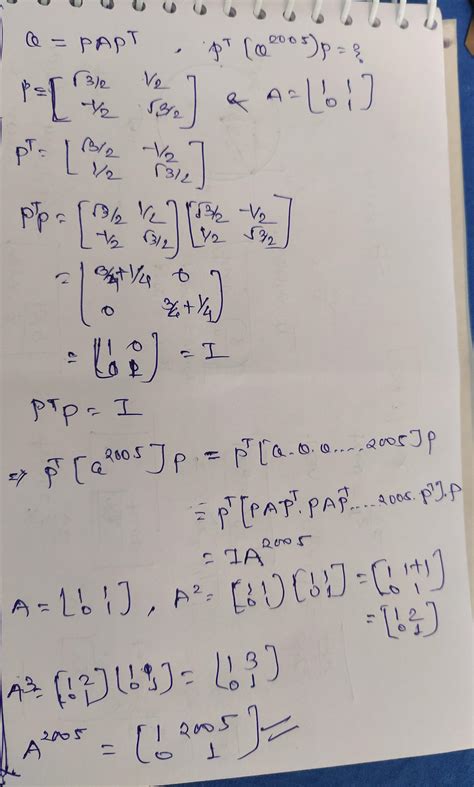 Q = PAPᵀ , Pᵀ[Q²⁰⁰⁵)P = ?
P = [√3/2 1/2 -1/2 √3/2] & A = [1 1 0 1]
Pᵀ = [√3/2 -1/2 1/2 √3/2]
PᵀP = [√3/2 1/2 -1/2 √3/2] [√3/2 -1/2 1/2 √3/2]
= [3/4+1/4 0 0 3/4+1/4]
= [1 0 0 1] = I
PᵀP = I
⇒ Pᵀ[Q²⁰⁰⁵]P = Pᵀ[Q.Q.Q.....2005]P
= Pᵀ[PAPᵀ.PAPᵀ....2005.Pᵀ].P
= IA²⁰⁰⁵
A = [1 1 0 1] , A² = [1 1 0 1] [1 1 0 1] = [1 1+1 0 1]
= [1 2 0 1]
A³ = [1 2 0 1] [1 1 0 1] = [1 3 0 1]
A²⁰⁰⁵ = [1 2005 0 1]